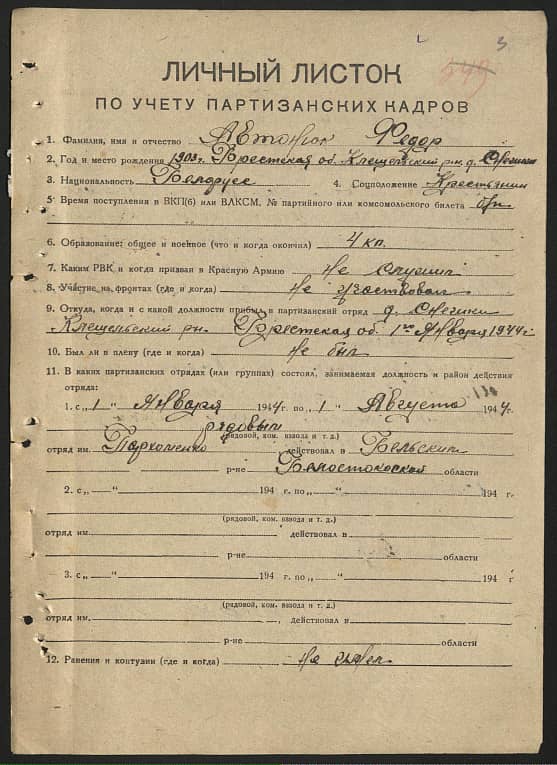 3
549
ЛИЧНЫЙ ЛИСТОК
ПО УЧЕТУ ПАРТИЗАНСКИХ КАДРОВ
1. Фамилия, имя и отчество Автонюк Федор
2. Год и место рождения 1903г. Брестская об. Клещельский рн. д.
3. Национальность Белорусс 4. Соцположение Крестьянин
5. Время поступления в ВКП(б) или ВЛКСМ, № партийного или комсомольского билета б/п
6. Образование: общее и военное (что и когда окончил) 4 кл.
7. Каким РВК и когда призван в Красную Армию Не служил
8. Участие на фронтах (где и когда) Не участвовал
9. Откуда, когда и с какой должности прибыл в партизанский отряд д.
Клещельский рн. Брестская об. 1го Января 1944г
10. Был ли в плену (где и когда) Не был
11. В каких партизанских отрядах (или группах) состоял, занимаемая должность и район действия
отряда:
1. с „ 1 “ Января 1944 г. по „ 1 “ Августа 1944 г.
рядовым
(рядовой, ком. взвода и т. д.)
отряд им. Пархоменко действовал в Бельским
р-не Белостокской области
2. с „ “ 194 г. по „ “ 194 г.
(рядовой, ком. взвода и т. д.)
отряд им. действовал в
р-не области
3. с „ “ 194 г. по „ “ 194 г
(рядовой, ком. взвода и т. д.)
отряд им. , действовал в
р-не области
12. Ранения и контузии (где и когда) Не имел